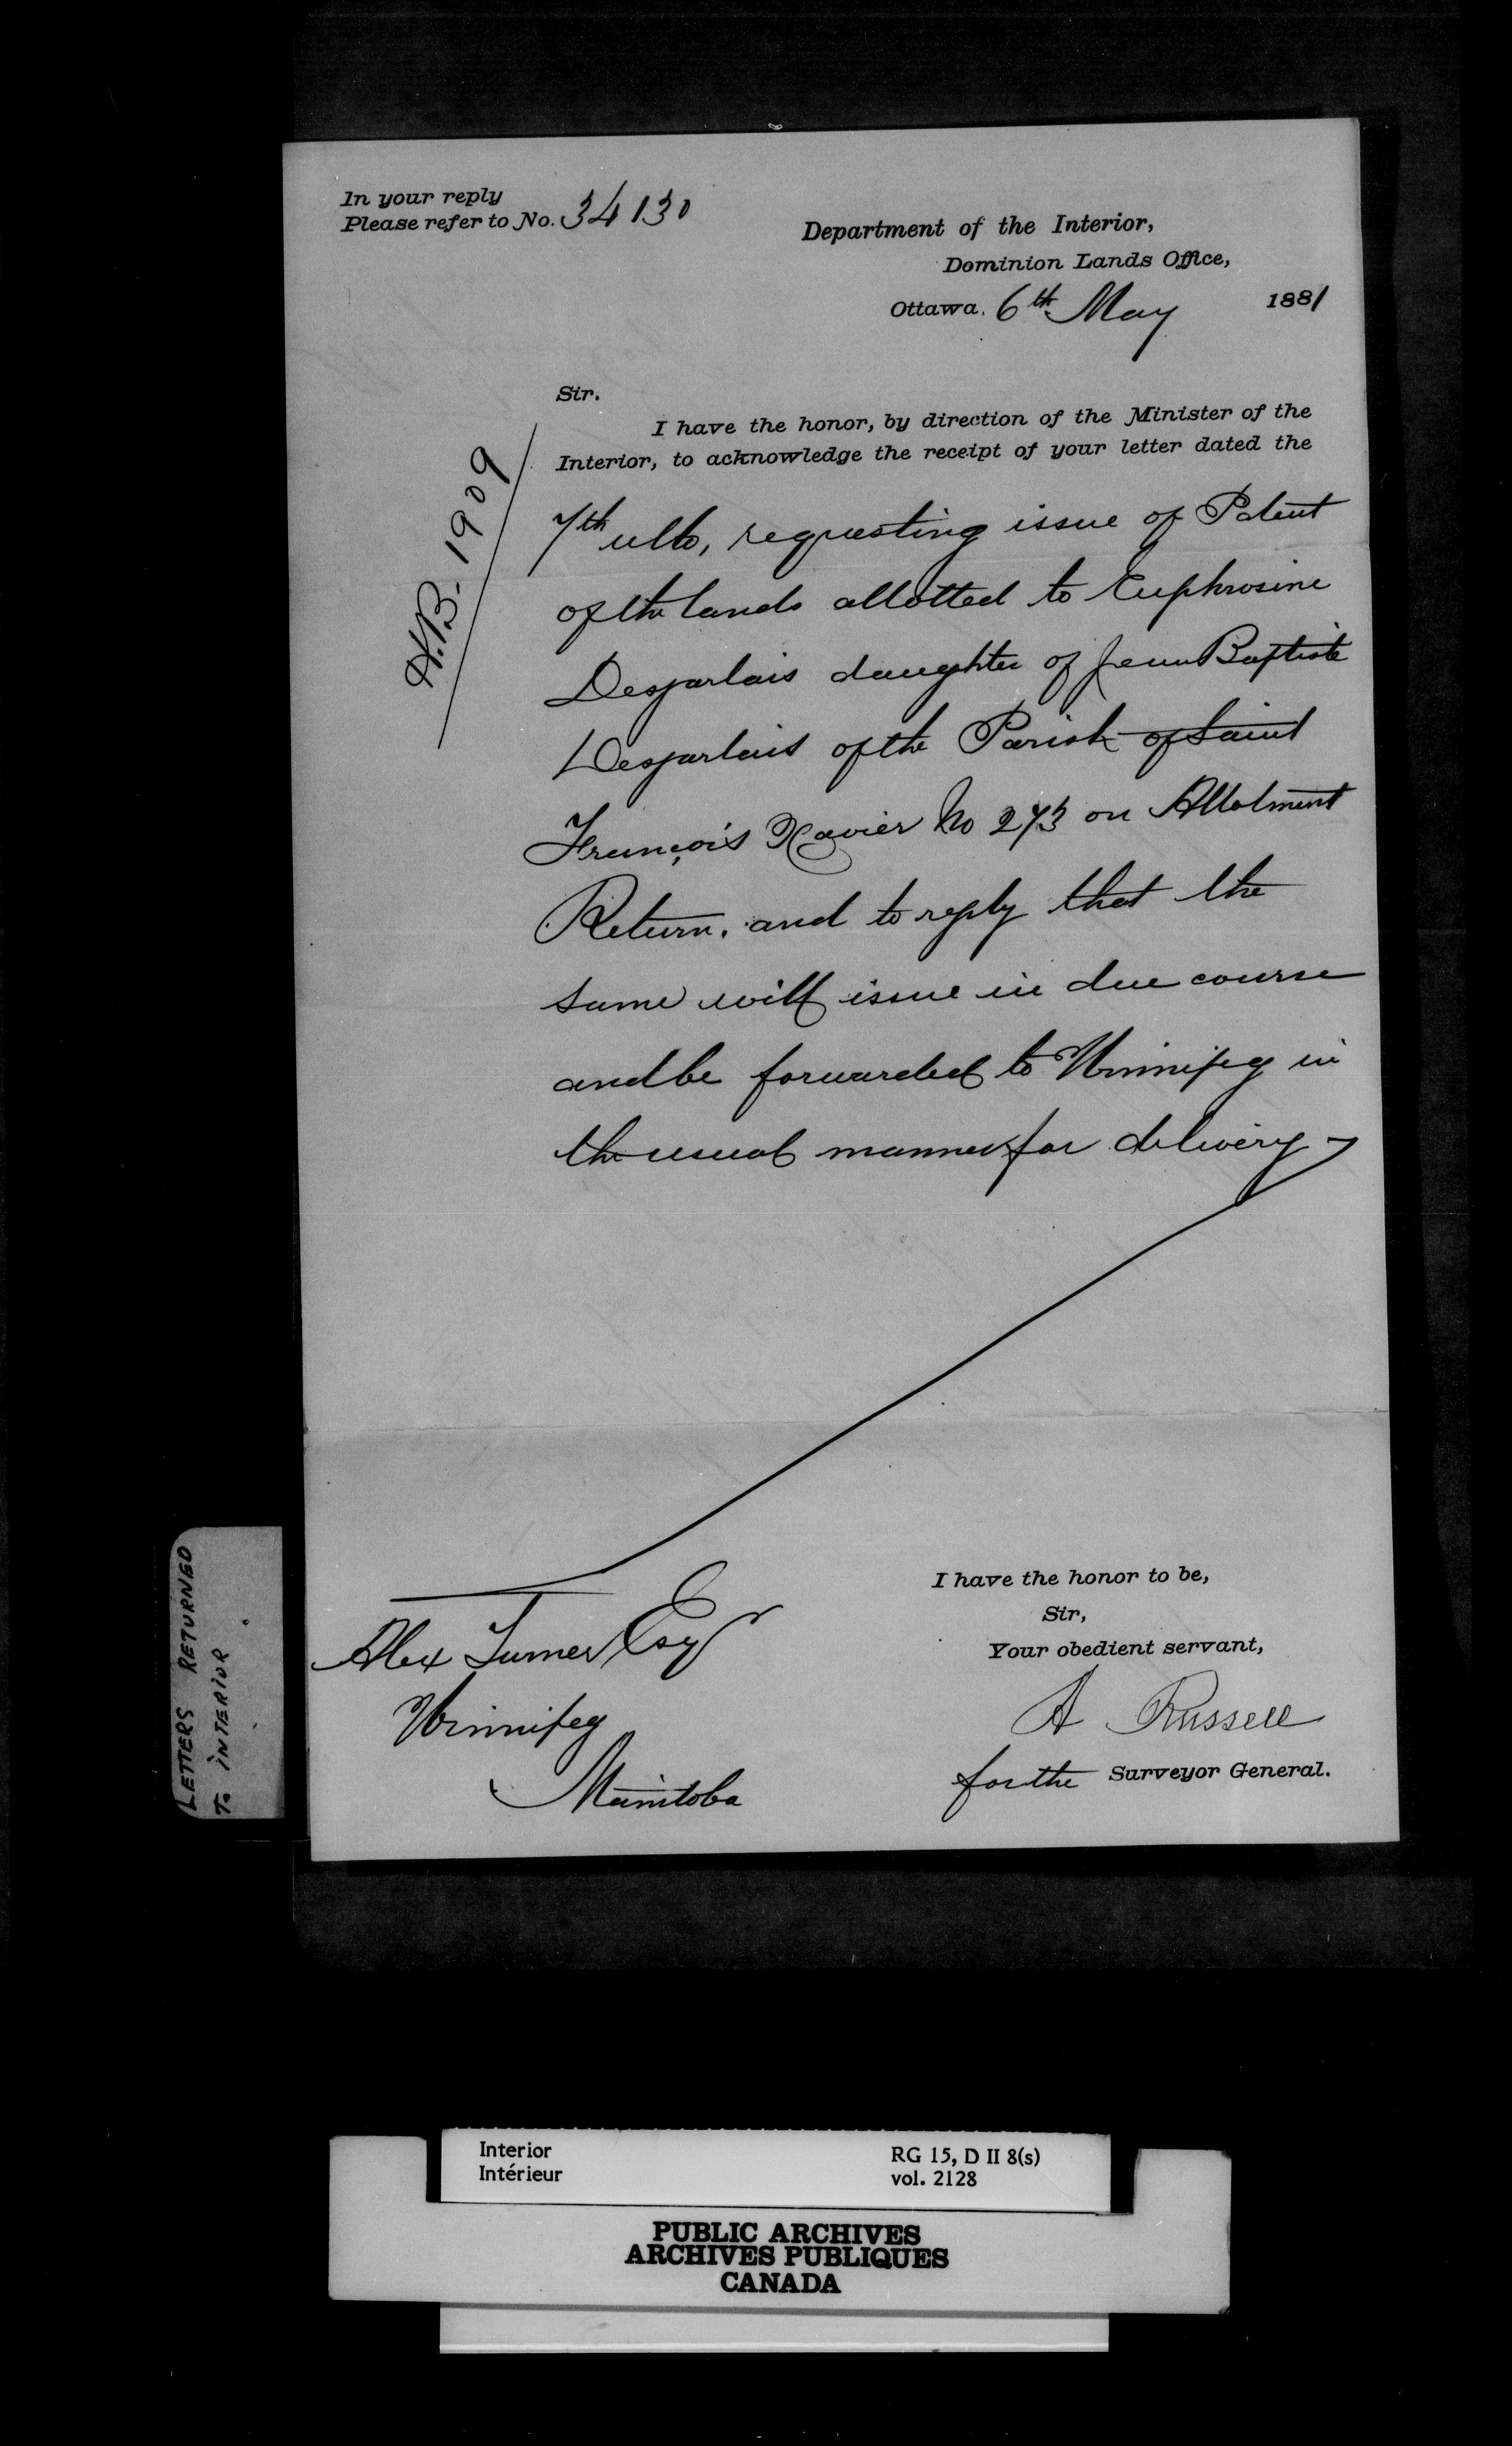 In your reply
Please refer to No. 34130
Department of the Interior,
Dominion Lands Office,
Ottawa. 6th May 1881
H.B. 1909
Sir.
I have the honor, by direction of the Minister of the
Interior, to acknowledge the receipt of your letter dated the
7th ulto, requesting issue of Patent
of the lands allotted to Euphrosine
Desjarlais daughter of Jean Baptiste
Desjarlais of the Parish of Saint
François Xavier No 273 on Allotment
Return. and to reply that the
same will issue in due course
and be forwarded to Winnipeg in
the usual manner for delivery
I have the honor to be,
Sir,
Your obedient servant,
A Russell
for the Surveyor General.
Alex Turner Esqr
Winnipeg
Manitoba
LETTERS RETURNED
TO INTERIOR.
Interior
Intérieur
RG 15, D II 8(s)
vol. 2128
PUBLIC ARCHIVES
ARCHIVES PUBLIQUES
CANADA